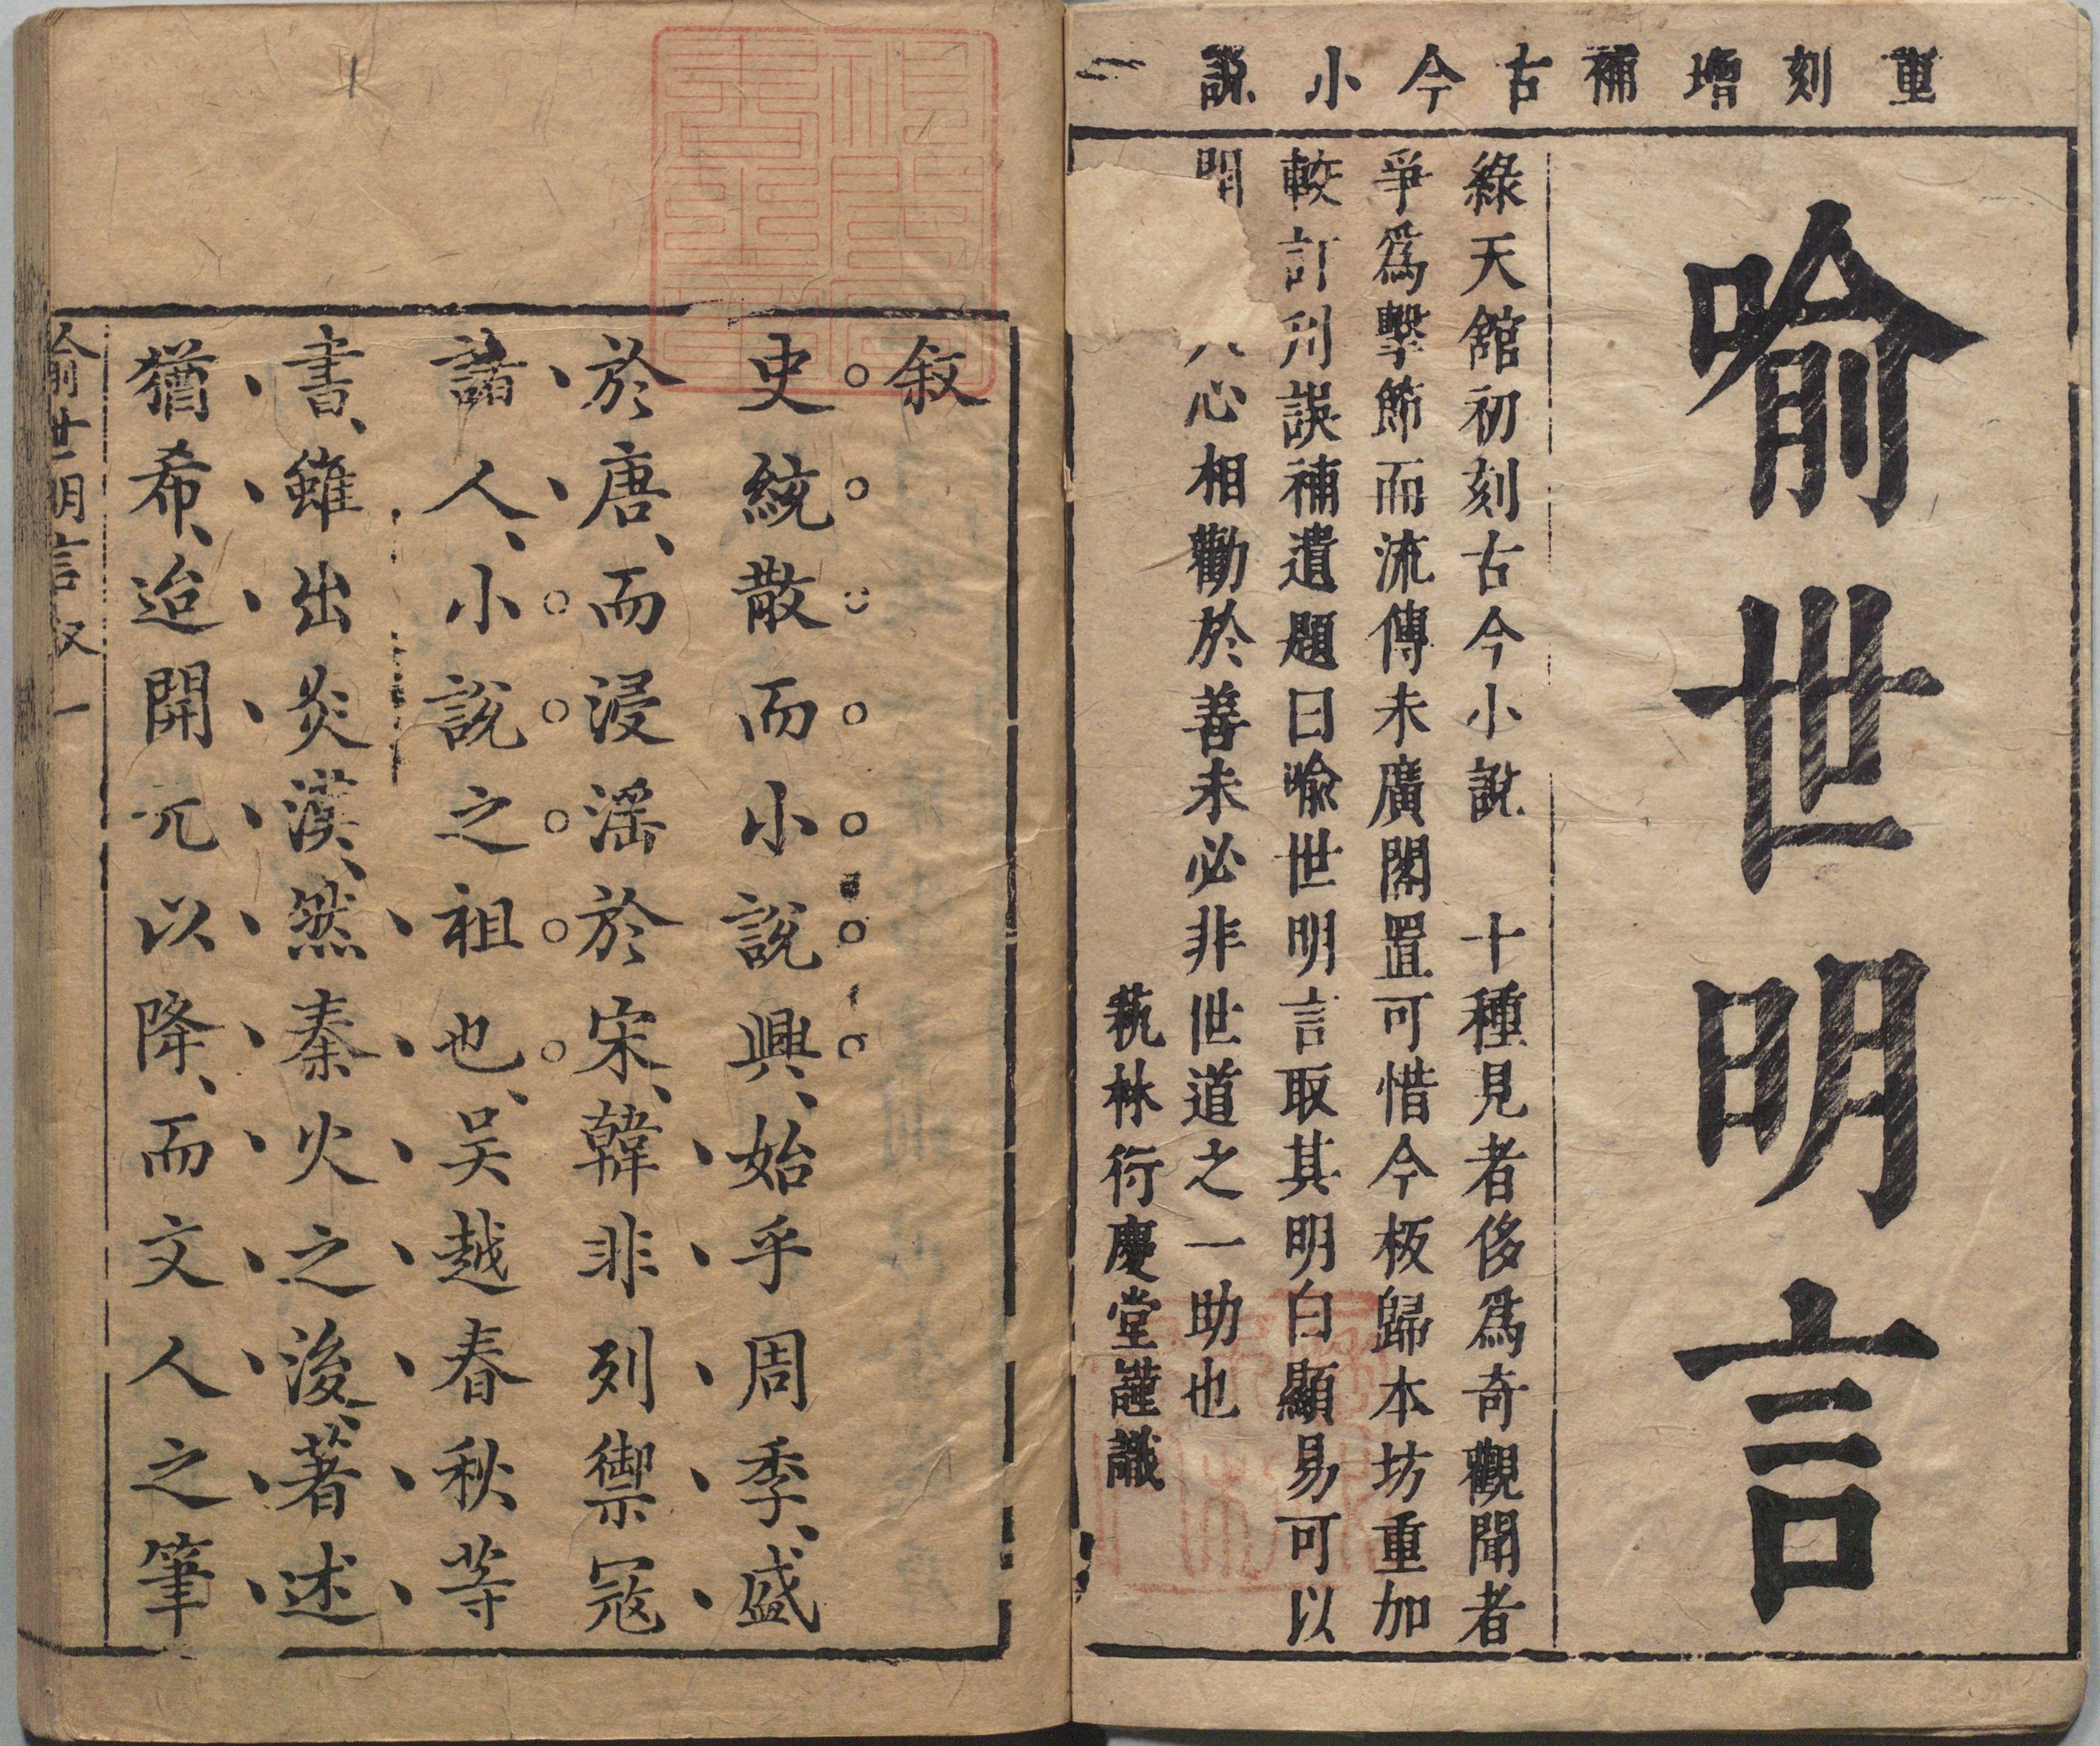 重刻增補古今小說
喻世明言
綠天舘初刻古今小說　十種見者侈爲奇觀聞者
爭爲擊節而流傳未廣閣置可惜今板歸本坊重加
較訂刊誤補遺題曰喻世明言取其明白顯易可以
人心相勸於善未必非世道之一助也
蓺林衍慶堂謹識
叙
史統散而小說興、始乎周季、盛
於唐、而浸淫於宋、韓非列禦冦
諸人、小說之祖也、吴越春秋等
書、雖出炎漢、然秦火之後、著述
猶希、迨開元以降、而文人之筆
喻世明言叙 一